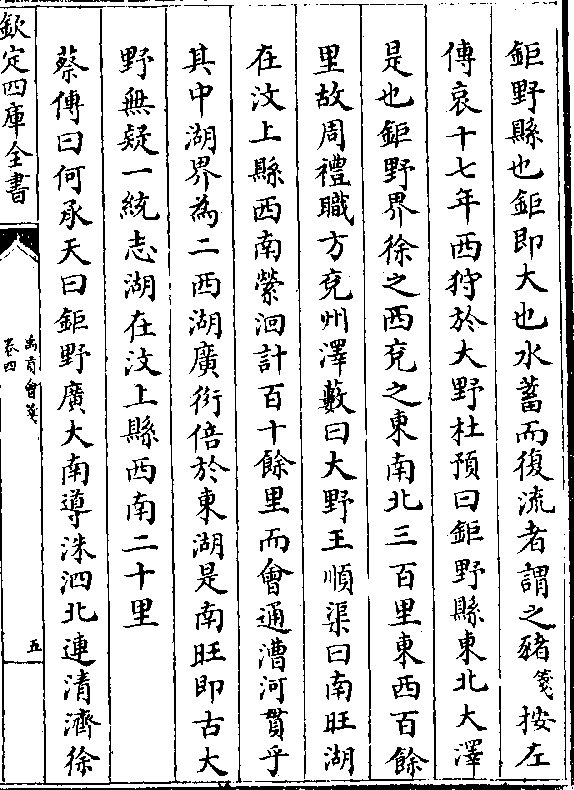 鉅野縣也鉅即大也水蓄而復流者謂之豬箋按左
傳哀十七年西狩於大野杜預曰鉅野縣東北大澤
是也鉅野界徐之西兗之東南北三百里東西百餘
里故周禮職方兗州澤藪曰大野王順渠曰南旺湖
在汶上縣西南縈洄計百十餘里而會通漕河貫乎
其中湖界為二西湖廣衍倍於東湖是南旺即古大
野無疑一統志湖在汶上縣西南二十里
蔡傳曰何承天曰鉅野廣大南導洙泗北連清濟徐
欽定四庫全書
禹貢會箋
卷四
五